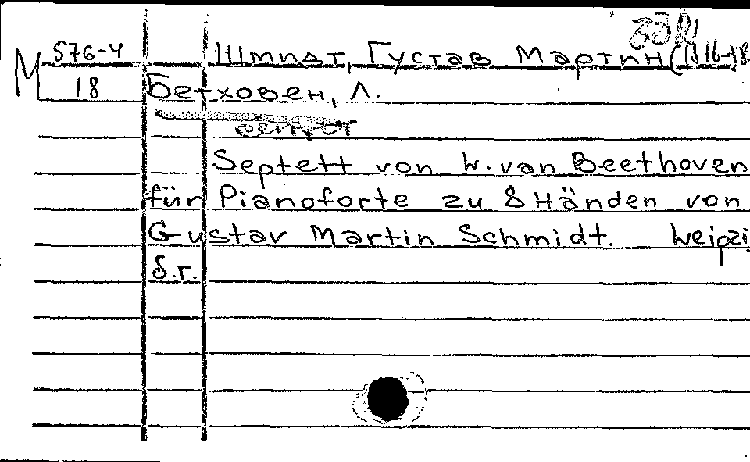 М 576-4
18
Шмидт, Густав Мартин (1816-18
Бетховен, Л.
септет
Septett von L. van Beethoven
für Pianoforte zu 8 Händen von
Gustav Martin Schmidt. Leipzi
б.г.